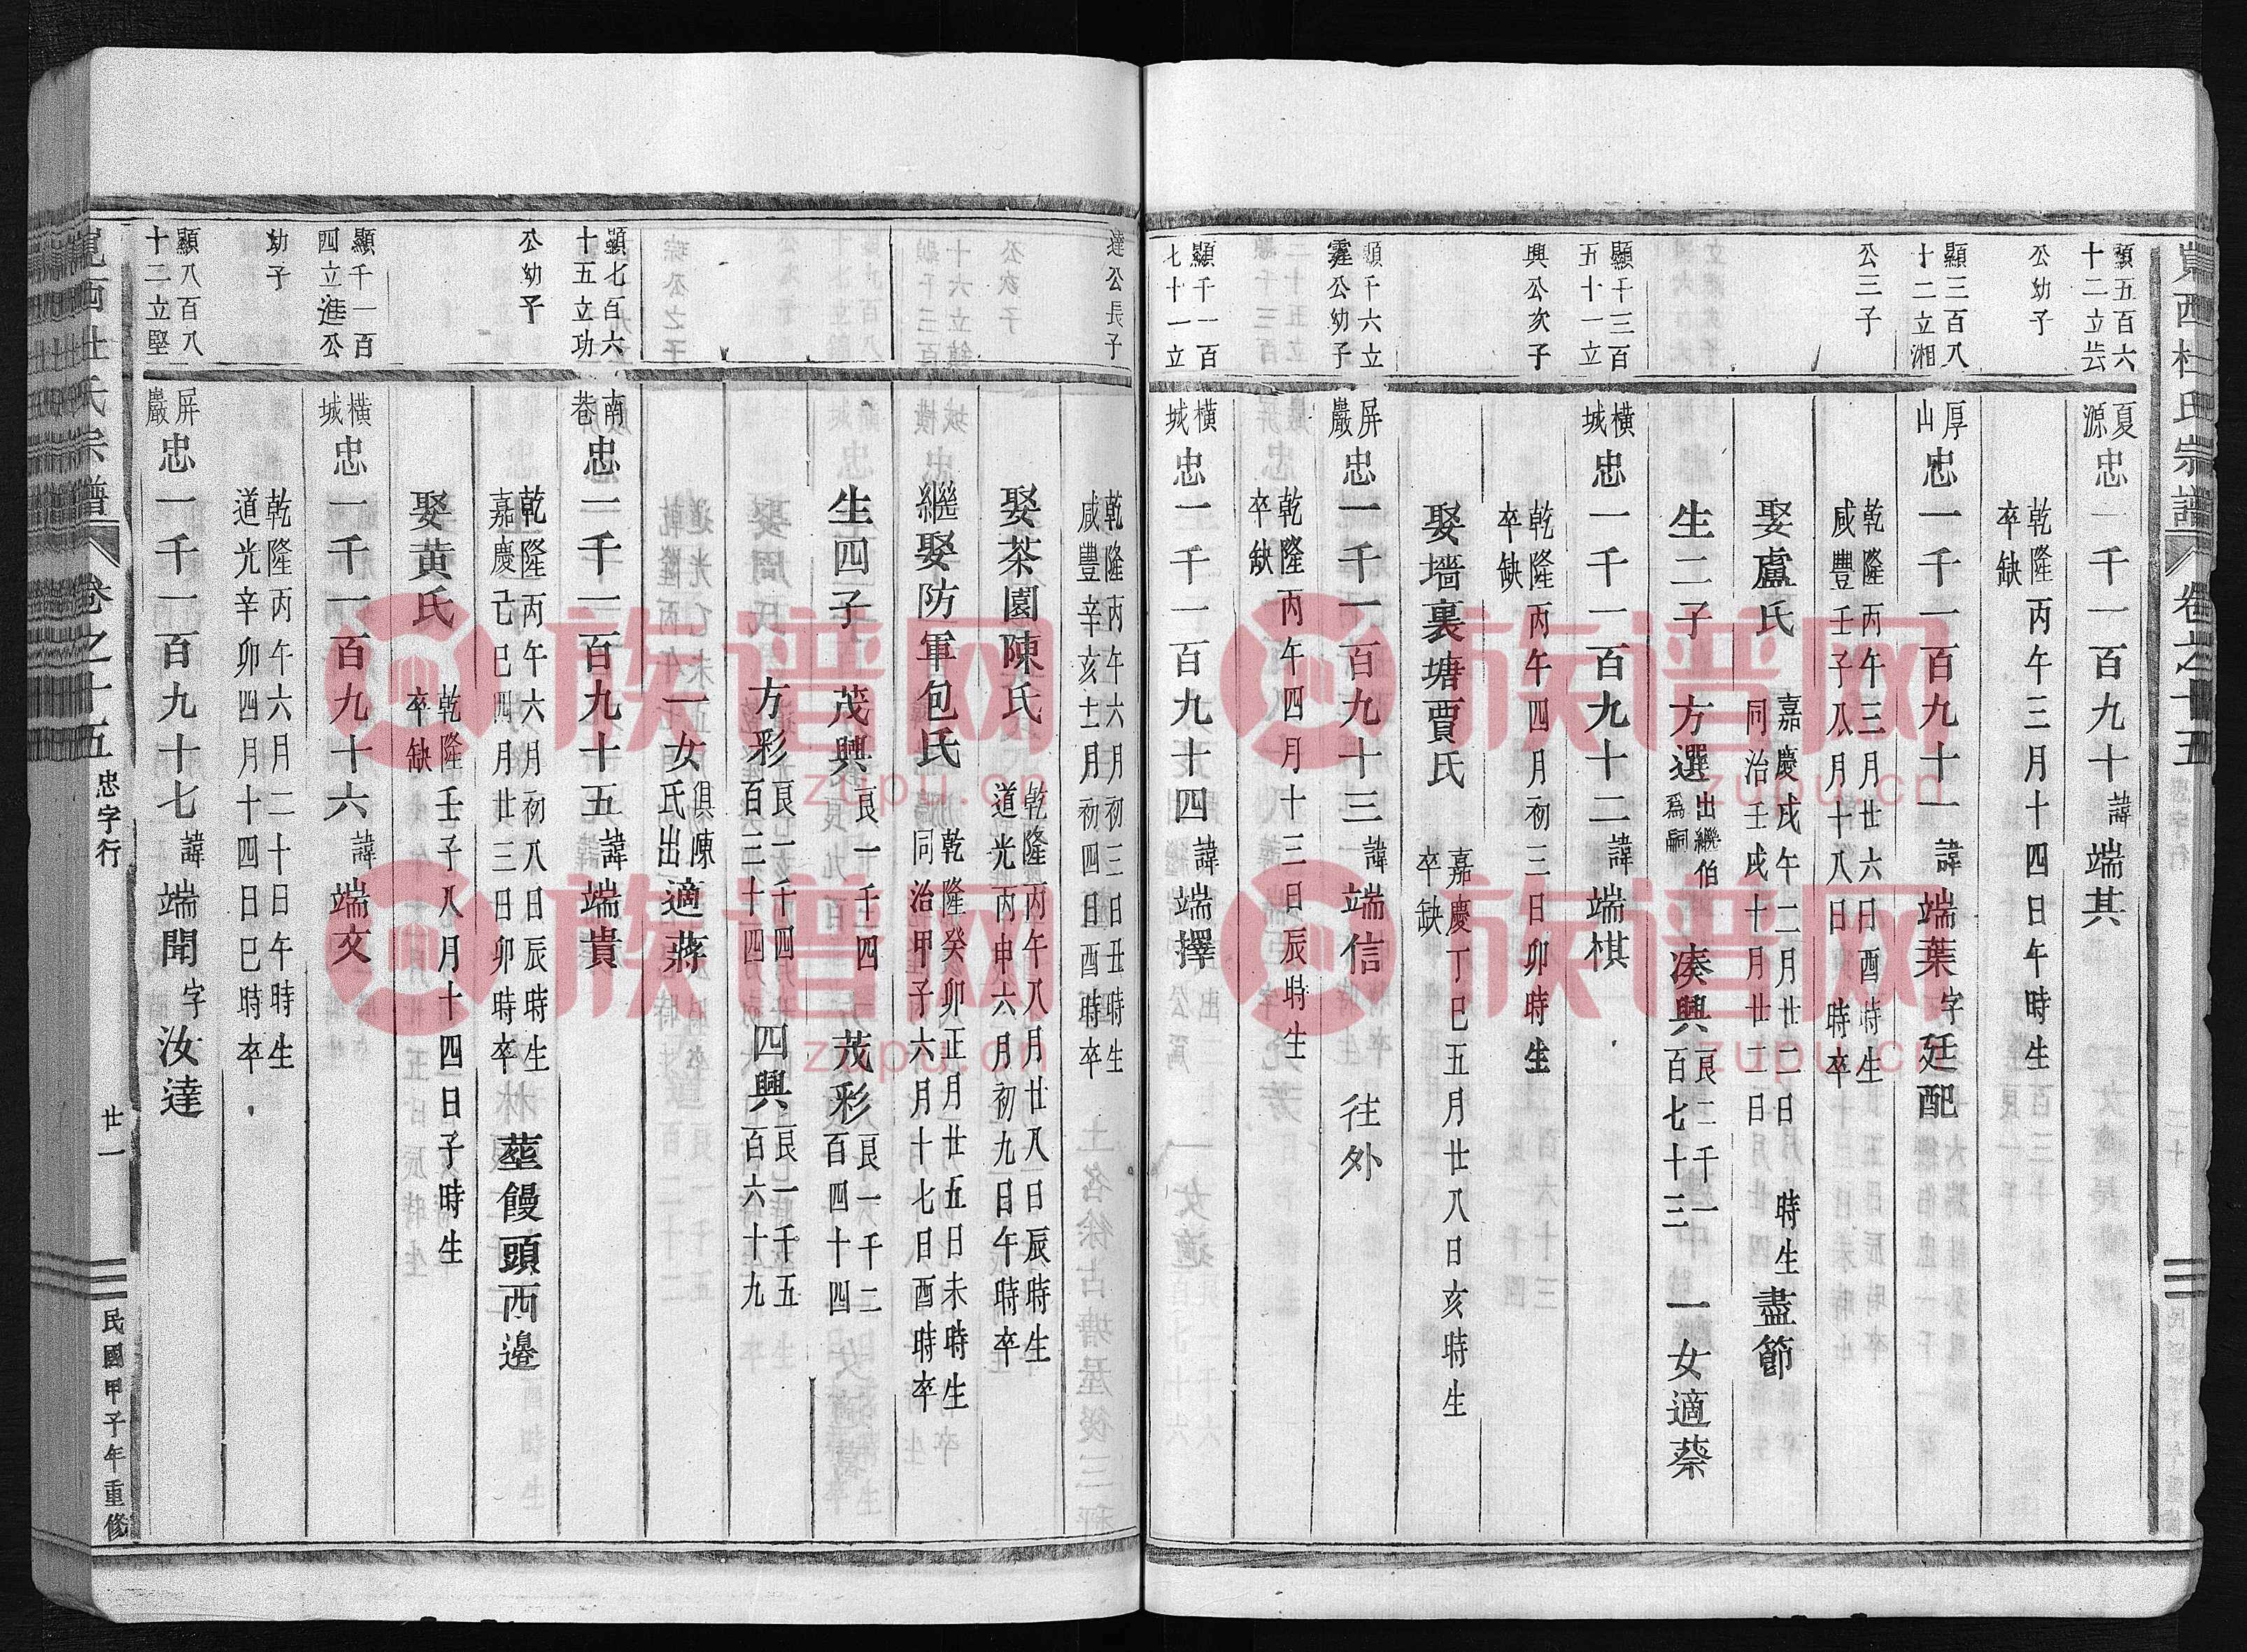 西杜氏宗譜
卷之十五
顯五百六
十二立
公幼子
夏源
忠一千一百九十
諱端其
乾隆丙午三月十四日午時生
卒缺
顯三百八
十二立湘
公三子
厚山
忠一千一百九十一
諱端葉
字廷配
乾隆丙午三月廿六日酉時生
咸豐壬子八月十八日 時卒
娶盧氏
嘉慶戊午二月廿二日 時生
同治壬戌十月廿二日
盡節
生二子
方選
出繼伯
為嗣
湊興
良二千一
百七十三
一女適蔡
顯千三百
五十一立
興公次子
橫城
忠一千一百九十二
諱端棋
乾隆丙午四月初三日卯時生
卒缺
娶墻裏塘賈氏
嘉慶丁巳五月廿八日亥時生
卒缺
顯千六立
霆公幼子
屏巖
忠一千一百九十三
諱端信
往外
乾隆丙午四月十三日辰時生
卒缺
顯千一百
七十一立
達公長子
橫城
忠一千一百九十四
諱端擇
乾隆丙午六月初三日丑時生
咸豐辛亥十二月初四日酉時卒
娶茶園陳氏
乾隆丙午八月廿八日辰時生
道光丙申六月初九日午時卒
繼娶防軍包氏
乾隆癸卯正月廿五日未時生
同治甲子六月十七日酉時卒
生四子
茂興
良一千四
茂彩
良一千二
百四十四
方彩
良一千四
百二十四
四興
良一千五
百六十九
一女
俱陳
氏出
適蔣
顯七百六
十五立功
公幼子
南巷
忠一千一百九十五
諱端貴
乾隆丙午六月初八日辰時生
嘉慶己巳四月廿三日卯時卒
塟饅頭西邊
娶黃氏
乾隆壬子八月十四日子時生
卒缺
顯千一百
四立進公
幼子
橫城
忠一千一百九十六
諱端交
乾隆丙午六月二十日午時生
道光辛卯四月十四日巳時卒
顯八百八
十二立堅
屏巖
忠一千一百九十七
諱端聞
字汝達
西杜氏宗譜
卷之十五
忠字行
廿一
民國甲子年重修
族谱网
zupu.cn
族谱网
zupu.cn
族谱网
zupu.cn
族谱网
zupu.cn